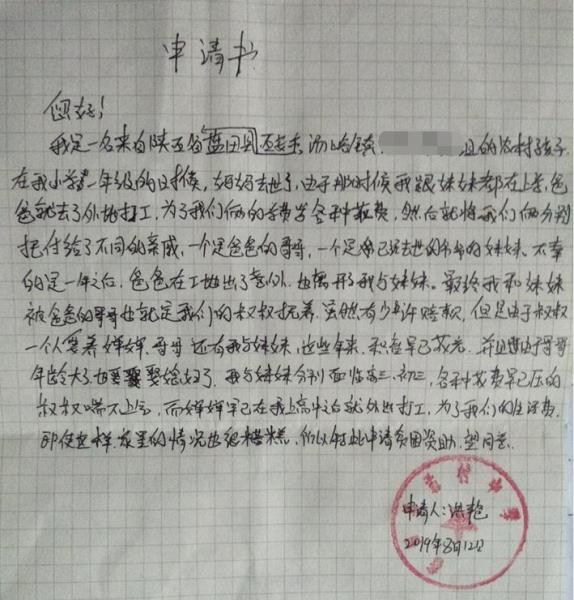 申请书
您好！
我是一名来自陕西省蓝田县 汤峪镇 组的农村孩子
在我小学一年级的时候，妈妈去世了，由于那时候我跟妹妹都在上学，爸
爸就去了外地打工，为了我们俩的学费各种花费，然后就将我们俩分别
托付给了不同的亲戚，一个是爸爸的哥哥，一个是已经去世的爷爷的妹妹。不幸
的是一年之后，爸爸在工地出了意外，也离开了我与妹妹。最终我和妹妹
被爸爸的哥哥也就是我们的叔叔抚养。虽然有少许赔款，但是由于叔叔
一个人要养婶婶、哥哥还有我与妹妹，这些年来，积蓄早已花光。并且由于哥哥
年龄大了也要娶媳妇了。我与妹妹分别面临高三、初三，各种花费早已压的
叔叔喘不上气，而婶婶早已在我上高中之前就外出打工，为了我们的生活费。
即使这样，家里的情况也很糟糕，所以特此申请贫困资助，望同意。
申请人：洪艳
2019年8月12日